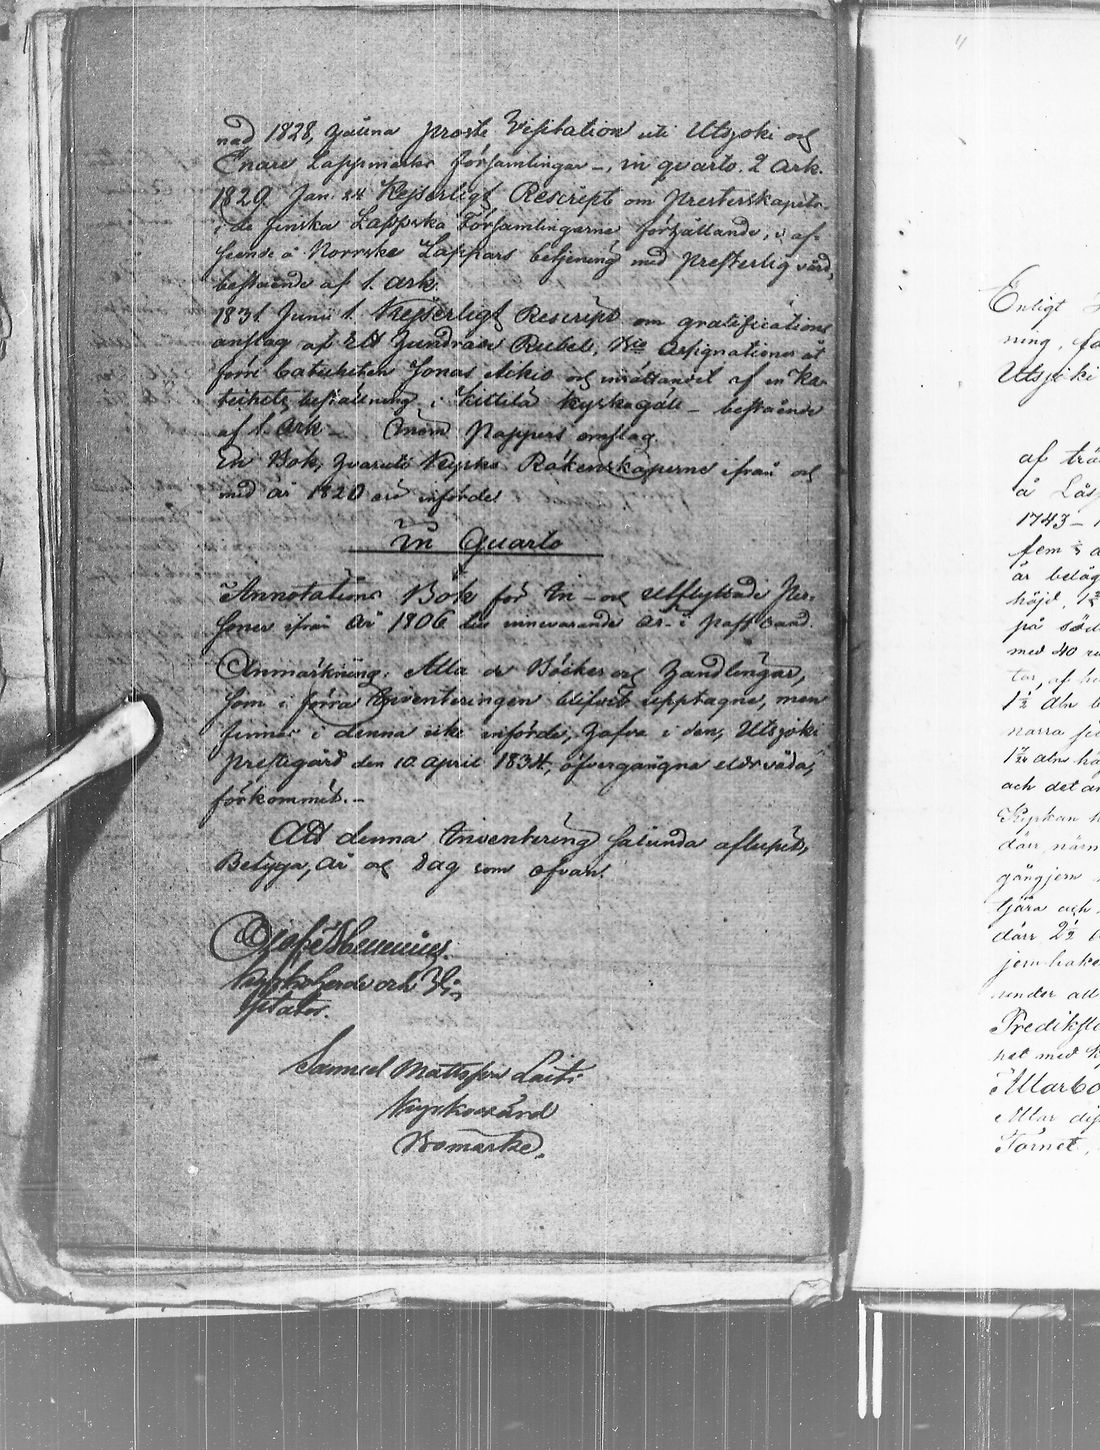 nad 1828, hållna Prosts Visitation uti Utsjoki och
Enare Lappmarks Församlingar –, in quarto. 2 ark.
1829 Jan. 24 Kejserligt Rescript om Presterskapets
i de finska Lappska Församlingarne förhållande, i af-
seende å Norrske Lappars betjening med presterlig vård,
bestående af 1. ark.
1831 Junii 1. Kejserligt Rescript om gratifications
anslag af Ett Hundrade Rubel, B:co Assignationer åt
förre Catecheten Jonas Aikio och inrättandet af en Ka-
techets beställning i Kittilä Kyrkogäll – bestående
af 1. ark – Inom Pappers omslag.
En Bok, hvaruti Kyrko Räkenskaperne ifrån och
med år 1820 äro införde
in Quarto
Annotations Bok för In – och Utflyttade Per-
soner ifrån år 1806 till innevarande år i pappband.
Anmärkning. Alla de Böcker och Handlingar,
som i förra Inventeringen blifvit upptagne, men
finnas i denna icke införde, hafva i den, Utsjoki
prestegård den 10 April 1834, öfvergångna eldsvåda,
förkommit. –
Att denna Inventering sålunda aflupit,
Betyga, år och dag som ofvan.
Kyrkoherde och Vi-
sitator.
Samuel Mattsson Laiti
Kyrkovärd
Bomärke.
Enligt
ning, fö
Utsjoki
af trä
å Läs
1743 – 1
fem
är beläg
höjd, 1
på söd
med 40 ru
tor, af
1½ aln b
narra
aln hö
och det an
Kyrkan h
dörr, närm
gångjern
tjära och
dörr 2½
jern hake
under all
Predikst
het med
Altarbo
Altar
Tornet,